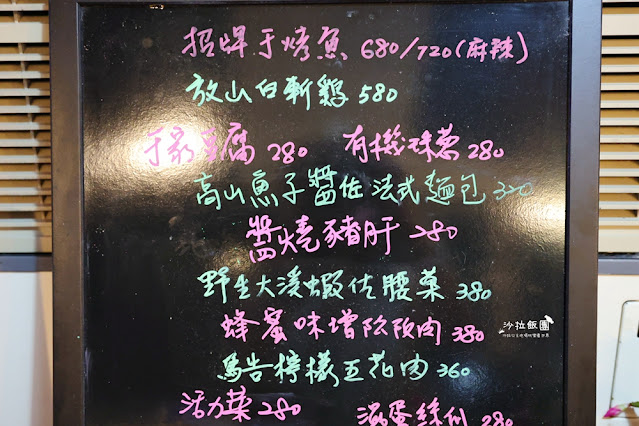 招牌手烤魚 680/720(麻辣)
放山白斬鷄 580
手家豆腐 280 有機珠葱 280
高山魚子醬佐法式麵包 320
醬燒豬肝 280
野生大溪蝦佐腰菓 380
蜂蜜味增松阪肉 380
馬告檸檬五花肉 360
沙拉飯團
活力菜 280 鹹蛋絲瓜 280